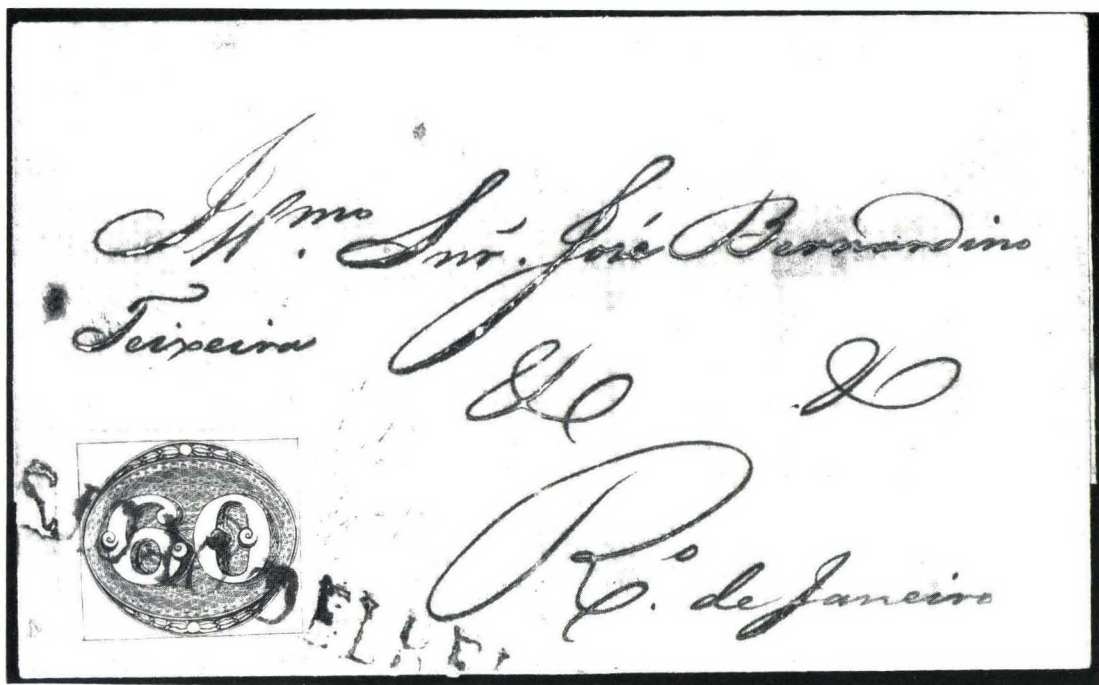 Illmo. Snr. José Bernardino
Teixeira
& &
R.o de Janeiro
60